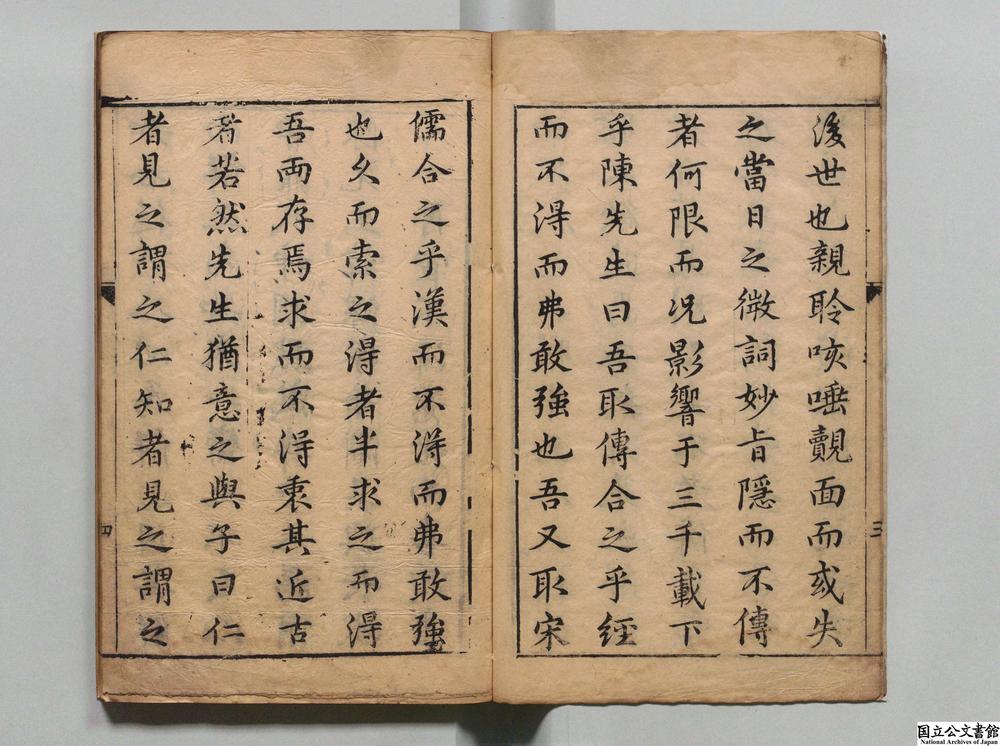 後世也親聆咳唾覿面而或失
之當日之微詞妙旨隱而不傳
者何限而况影響于三千載下
乎陳先生曰吾取傳合之乎經
而不淂而弗敢強也吾又取宋
三
儒合之乎漢而不淂而弗敢強
也久而索之淂者半求之而淂
吾兩存焉求而不淂衷其近古
者若然先生猶意之與子曰仁
者見之謂之仁知者見之謂之
四
国立公文書館
National Archives of Japan